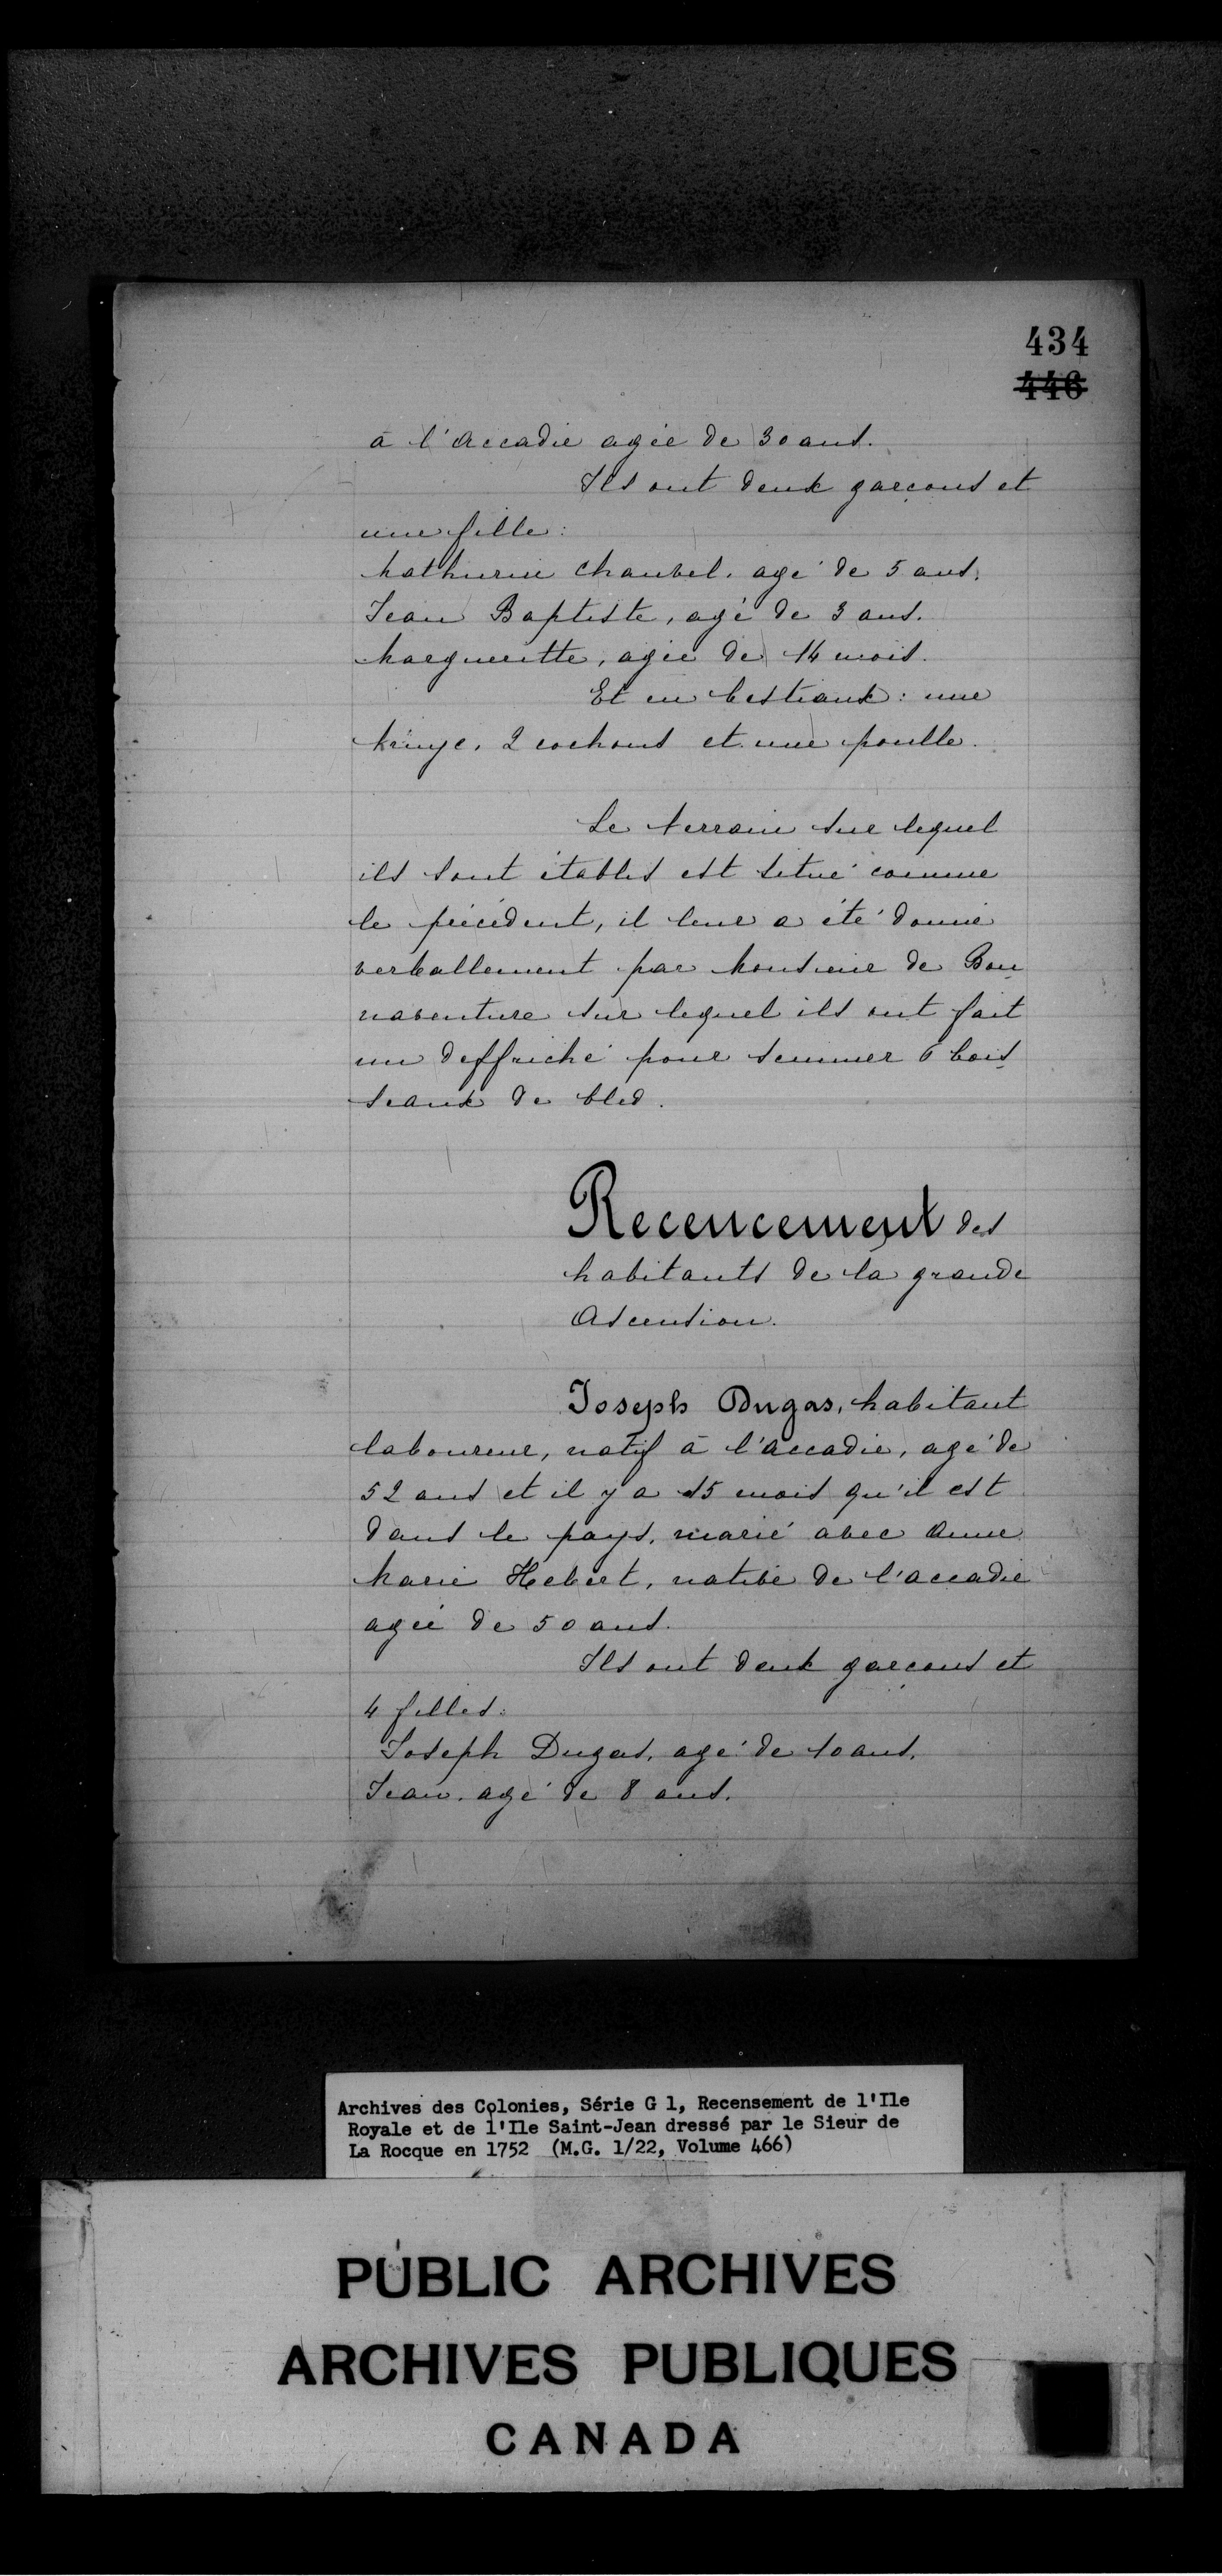 434
446
à l'Accadie agée de 30 ans.
Ils ont deux garçons et
une fille:
Mathurin Chauvel, agé de 5 ans,
Jean Baptiste, agé de 3 ans.
Margueritte, agée de 14 mois.
Et en bestiaux: une
truye, 2 cochons et une poulle.
Le terrain sur lequel
ils sont établis est situé comme
le précédent, il leur a été donné
verballement par Monsieur de Bon
naventure sur lequel ils ont fait
un deffriché pour semmer 6 bois
seaux de bled.
Recencement des
habitants de la grande
Ascension.
Joseph Dugas, habitant
laboureur, natif à l'accadie, agé de
52 ans et il y a 15 mois qu'il est
dans le pays, marié avec Anne
Marie Hebert, native de l'accadie
agée de 50 ans.
Ils ont deux garçons et
4 filles:
Joseph Dugas, agé de 10 ans,
Jean, agé de 8 ans.
Archives des Colonies, Série G 1, Recensement de l'Ile
Royale et de l'Ile Saint-Jean dressé par le Sieur de
La Rocque en 1752 (M.G. 1/22, Volume 466)
PUBLIC ARCHIVES
ARCHIVES PUBLIQUES
CANADA